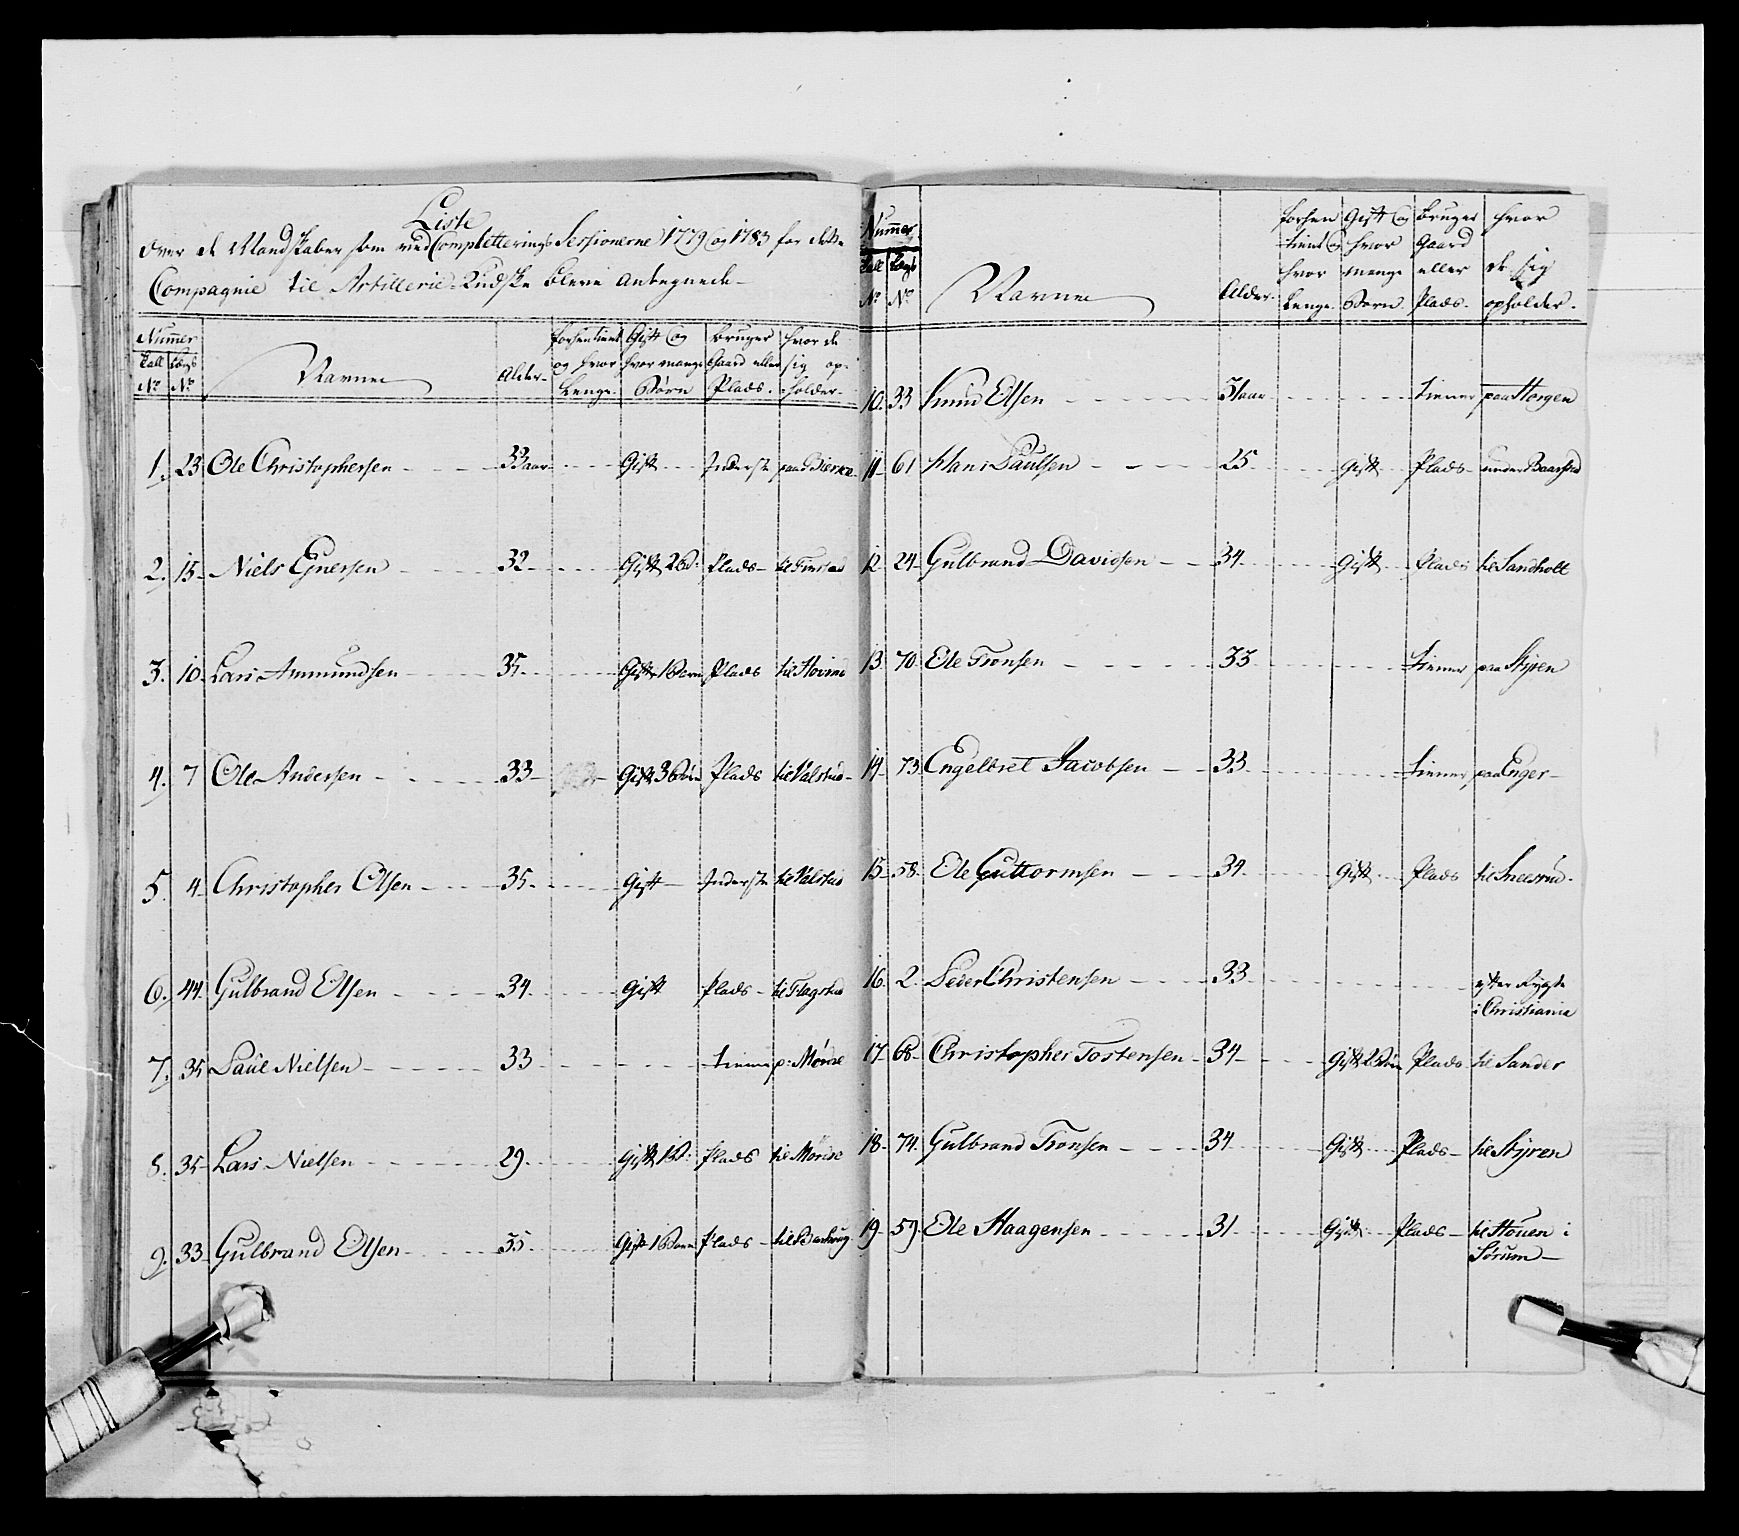 Liste
Over de Mandskaber som ved Completterings Sessionerne 1779 og 1783 for dette
Compagnie til Artillerie Kudske bleve antegnede
Nummer
Tall No | Lægs No | Navne | Alder | forhen tient og hvor Lenge | Gift og hvor mange Børn | bruger Gaard eller Plads | hvor de sig opholder
1. 23 Ole Christophersen 33 aar Gift Inderste paa Bierke
2. 15 Niels Ejnersen 32 Gift 2 B: Plads til Finstad
3. 10 Lars Ammundsen 35 Gift 1 Barn Plads til Hovind
4. 7 Ole Andersen 33 Gift 3 Børn Plads til Valstad
5. 4 Christopher Olsen 35 Gift Inderste til Valstad
6. 44 Gulbrand Olsen 34 Gift Plads til Flagstad
7. 35 Paul Nielsen 33 tiener p: Mørise
8. 35 Lars Nielsen 29 Gift 1 B: Plads til Mørise
9. 33 Gulbrand Olsen 35 Gift 1 Barn Plads til
Nummer
Tall No | Lægs No | Navne | Alder | forhen tient og hvor Lenge | Gift og hvor mange Børn | bruger Gaard eller Plads | hvor de sig opholder
10. 33 Knud Olsen 31 aar tiener paa Horgen
11 61 Hans Paulsen 25 gift Plads under Baarstad
12 24 Gulbrand Davidsen 34 gift Plads til Sandholt
13 70 Ole Tronsen 33 tiener paa Styren
14 73 Engelbret Jacobsen 33 tiener paa Enger
15 58 Ole Guttormsen 34 Gift Plads til Sneesrud
16 2 Peder Christensen 33 efter Rygte
i Christiania
17 68 Christopher Tostensen 34 Gift 2 Børn Plads til Sander
18 74 Gulbrand Tronsen 34 Gift Plads til Styren
19 59 Ole Haagensen 31 Gift Plads til Houen i
Sørum